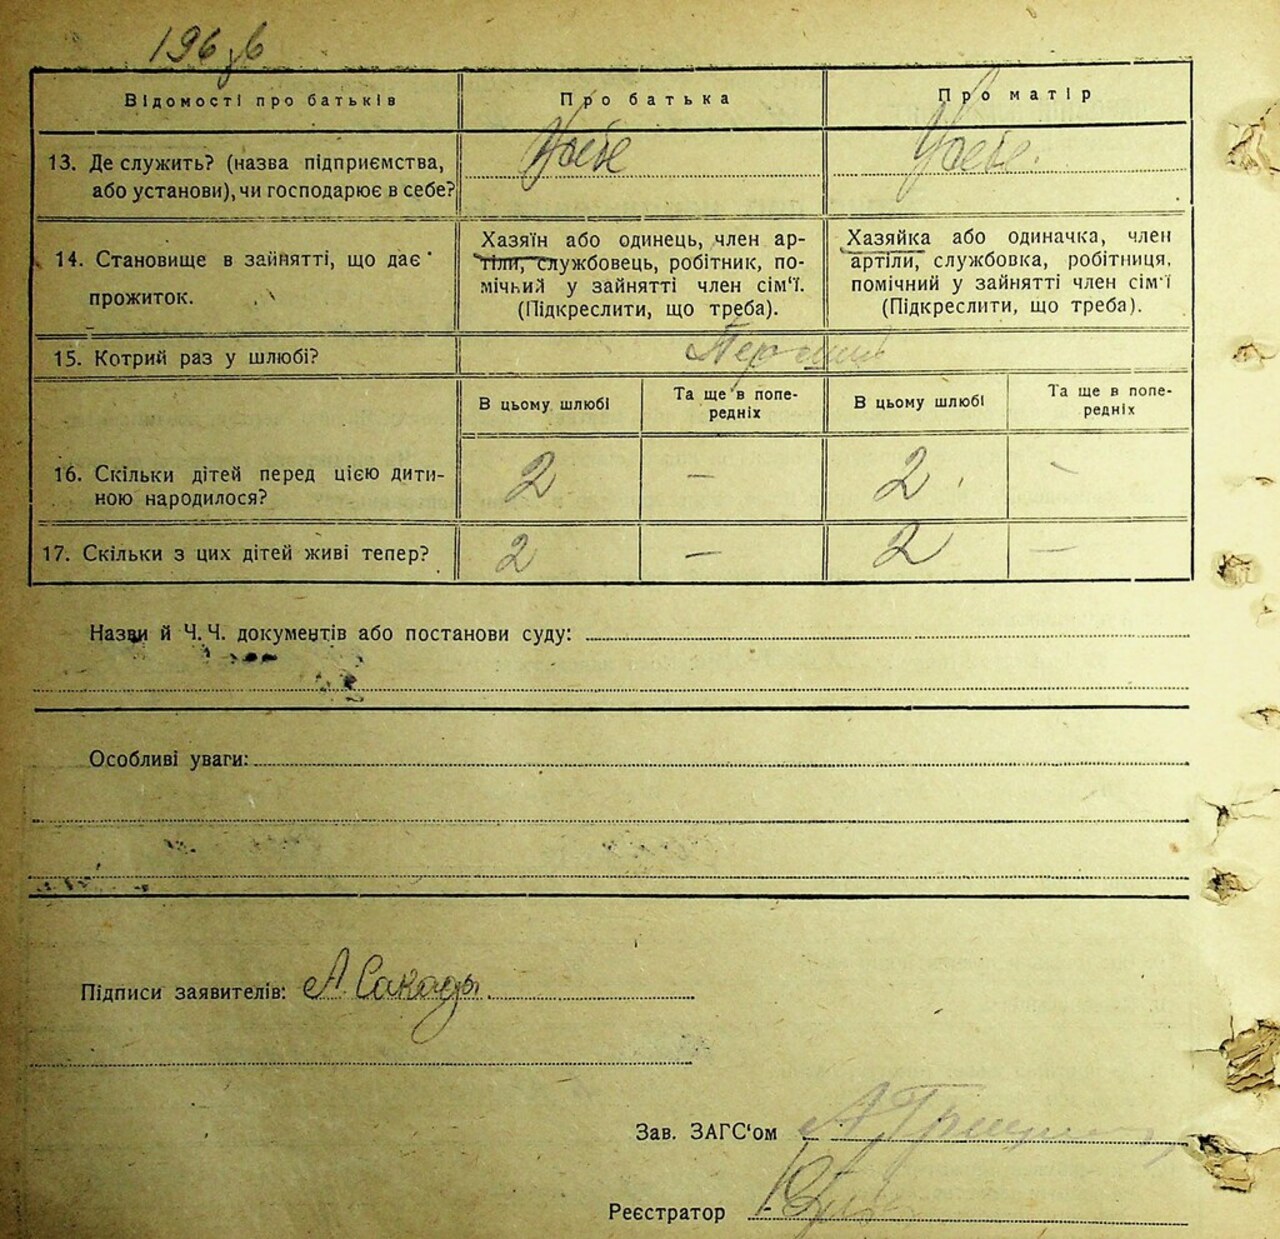 196 зв
Відомості про батьків
Про батька
Про матір
13. Де служить? (назва підприємства, або установи), чи господарює в себе?
У себе
У себе.
14. Становище в зайнятті, що дає прожиток.
Хазяїн або одинець, член ар-
тілі, службовець, робітник, по-
мічний у зайнятті член сім'ї.
(Підкреслити, що треба).
Хазяйка або одиначка, член
артілі, службовка, робітниця,
помічний у зайнятті член сім'ї
(Підкреслити, що треба).
15. Котрий раз у шлюбі?
В цьому шлюбі
Та ще в попе-
редніх
В цьому шлюбі
Та ще в попе-
редніх
16. Скільки дітей перед цією дити-
ною народилося?
2 — 2 —
17. Скільки з цих дітей живі тепер?
2 — 2 —
Назви й Ч.Ч. документів або постанови суду:
Особливі уваги:
Підписи заявителів: А Сакады
Зав. ЗАГС'ом
Реєстратор